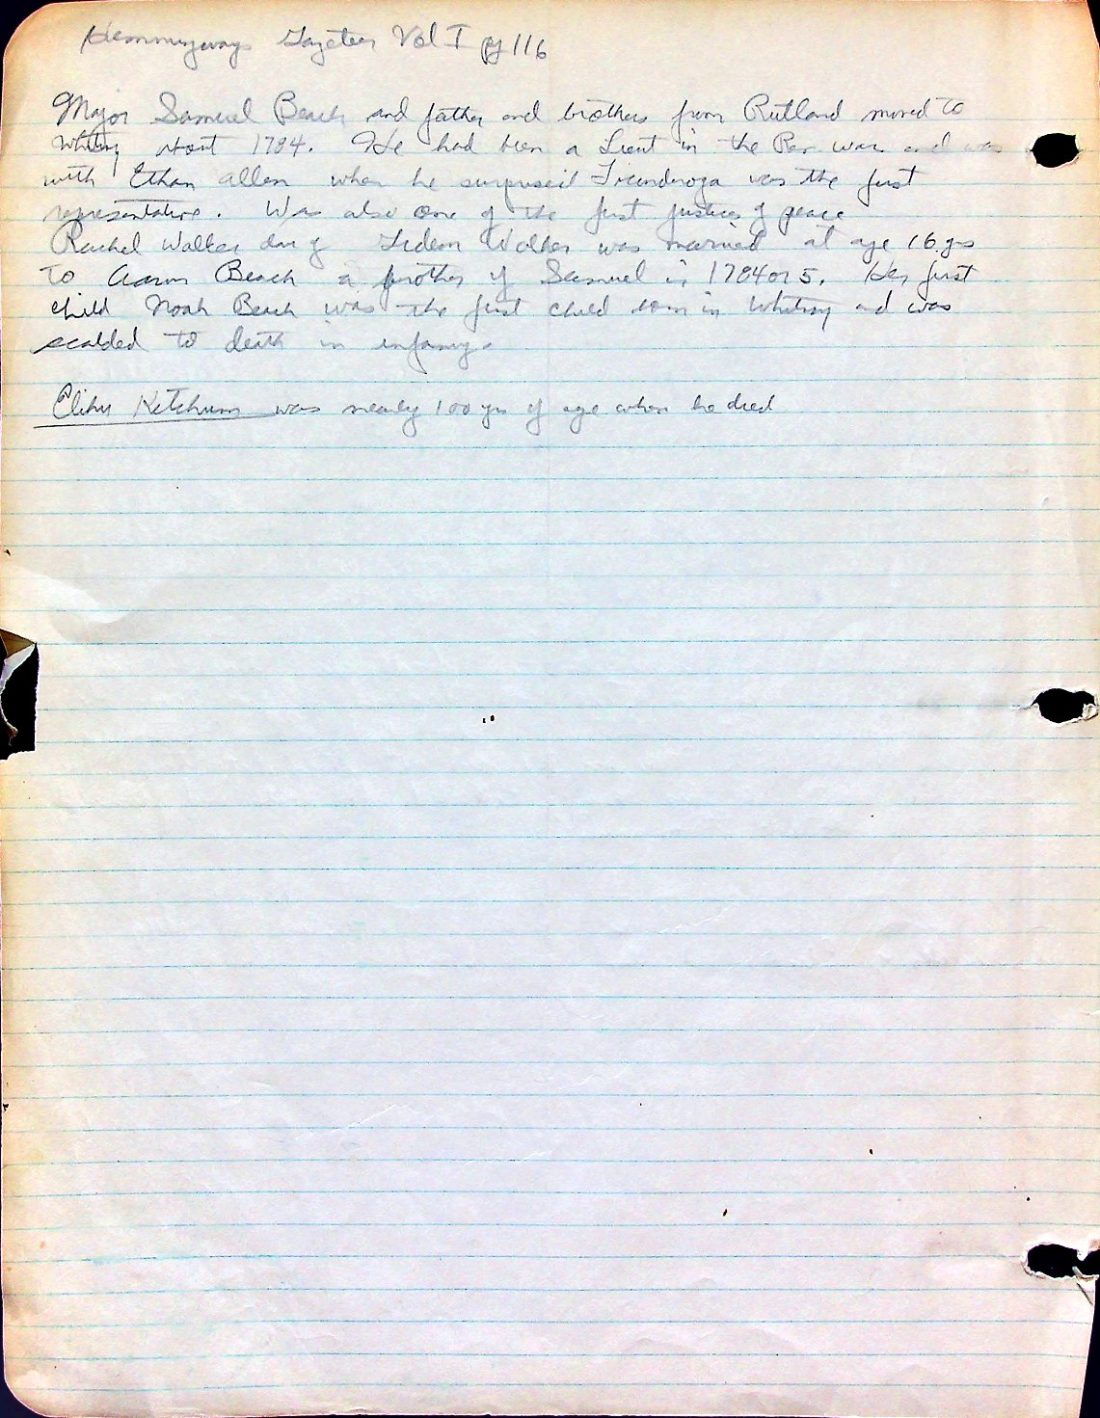 Hemmingways Gazeteer Vol I pg 116
Major Samuel Beach and father and brothers from Rutland moved to
Whiting about 1784. He had been a Lieut in the Rev war and was
with Ethan Allen when he surprised Ticonderoga was the first
representative. Was also one of the first justices of peace
Rachel Walker dau of Gideon Walker was married at age 16 yrs
to Aaron Beach a brother of Samuel in 1784 or 5. Her first
child Noah Beach was the first child born in Whiting and was
scalded to death in infancy.
Elihu Ketchum was nearly 100 yrs of age when he died